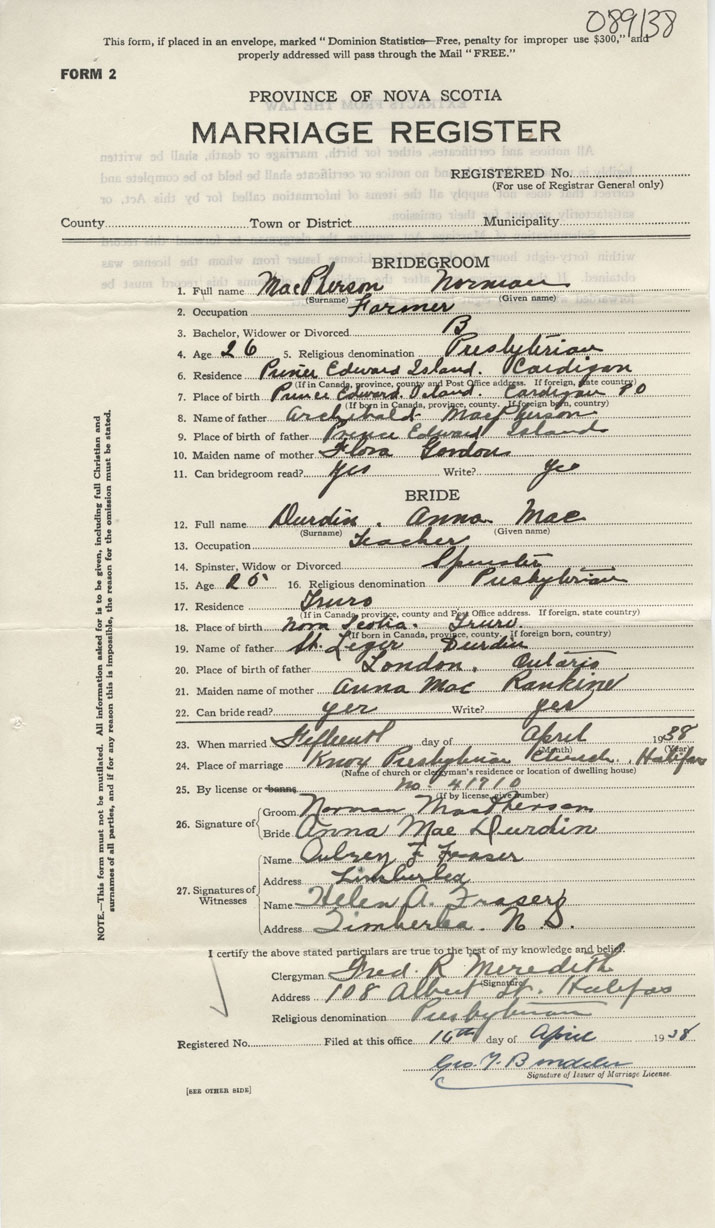 089/38
This form, if placed in an envelope, marked "Dominion Statistics—Free, penalty for improper use $300," and
properly addressed will pass through the Mail "FREE."
FORM 2
PROVINCE OF NOVA SCOTIA
MARRIAGE REGISTER
REGISTERED No.
(For use of Registrar General only)
County Town or District Municipality
BRIDEGROOM
1. Full name MacPherson Norman
(Surname) (Given name)
2. Occupation Farmer
3. Bachelor, Widower or Divorced B
4. Age 26 5. Religious denomination Presbyterian
6. Residence Prince Edward Island. Cardigan
(If in Canada, province, county and Post Office address. If foreign, state country)
7. Place of birth Prince Edward Island. Cardigan PO
(If born in Canada, province, county. If foreign born, country)
8. Name of father Archibald MacPherson
9. Place of birth of father Prince Edward Island
10. Maiden name of mother Flora Gordon
11. Can bridegroom read? Yes Write? yes
BRIDE
12. Full name Durdin. Anna Mae
(Surname) (Given name)
13. Occupation Teacher
14. Spinster, Widow or Divorced Spinster
15. Age 25 16. Religious denomination Presbyterian
17. Residence Truro
(If in Canada, province, county and Post Office address. If foreign, state country)
18. Place of birth Nova Scotia. Truro.
(If born in Canada, province, county. If foreign born, country)
19. Name of father St. Leger Durdin
20. Place of birth of father London. Ontario
21. Maiden name of mother Anna Mac Rankine
22. Can bride read? yes Write? yes
23. When married Fifteenth day of April 1938
(Month) (Year)
24. Place of marriage Knox Presbyterian Church, Halifax
(Name of church or clergyman's residence or location of dwelling house)
25. By license or banns no. 41710
(If by license, give number)
26. Signature of Groom Norman MacPherson
Bride Anna Mae Durdin
27. Signatures of Witnesses
Name Aubrey F Fraser
Address Timberlea
Name Helen A. Fraser
Address Timberlea. N.S.
I certify the above stated particulars are true to the best of my knowledge and belief.
Clergyman Fred. R Meredith
(Signature)
Address 108 Albert St. Halifax
Religious denomination Presbyterian
Registered No. Filed at this office 16th day of April 1938
Geo. T.
Signature of Issuer of Marriage License.
[SEE OTHER SIDE]
NOTE.—This form must not be mutilated. All information asked for is to be given, including full Christian and
surnames of all parties, and if for any reason this is impossible, the reason for the omission must be stated.